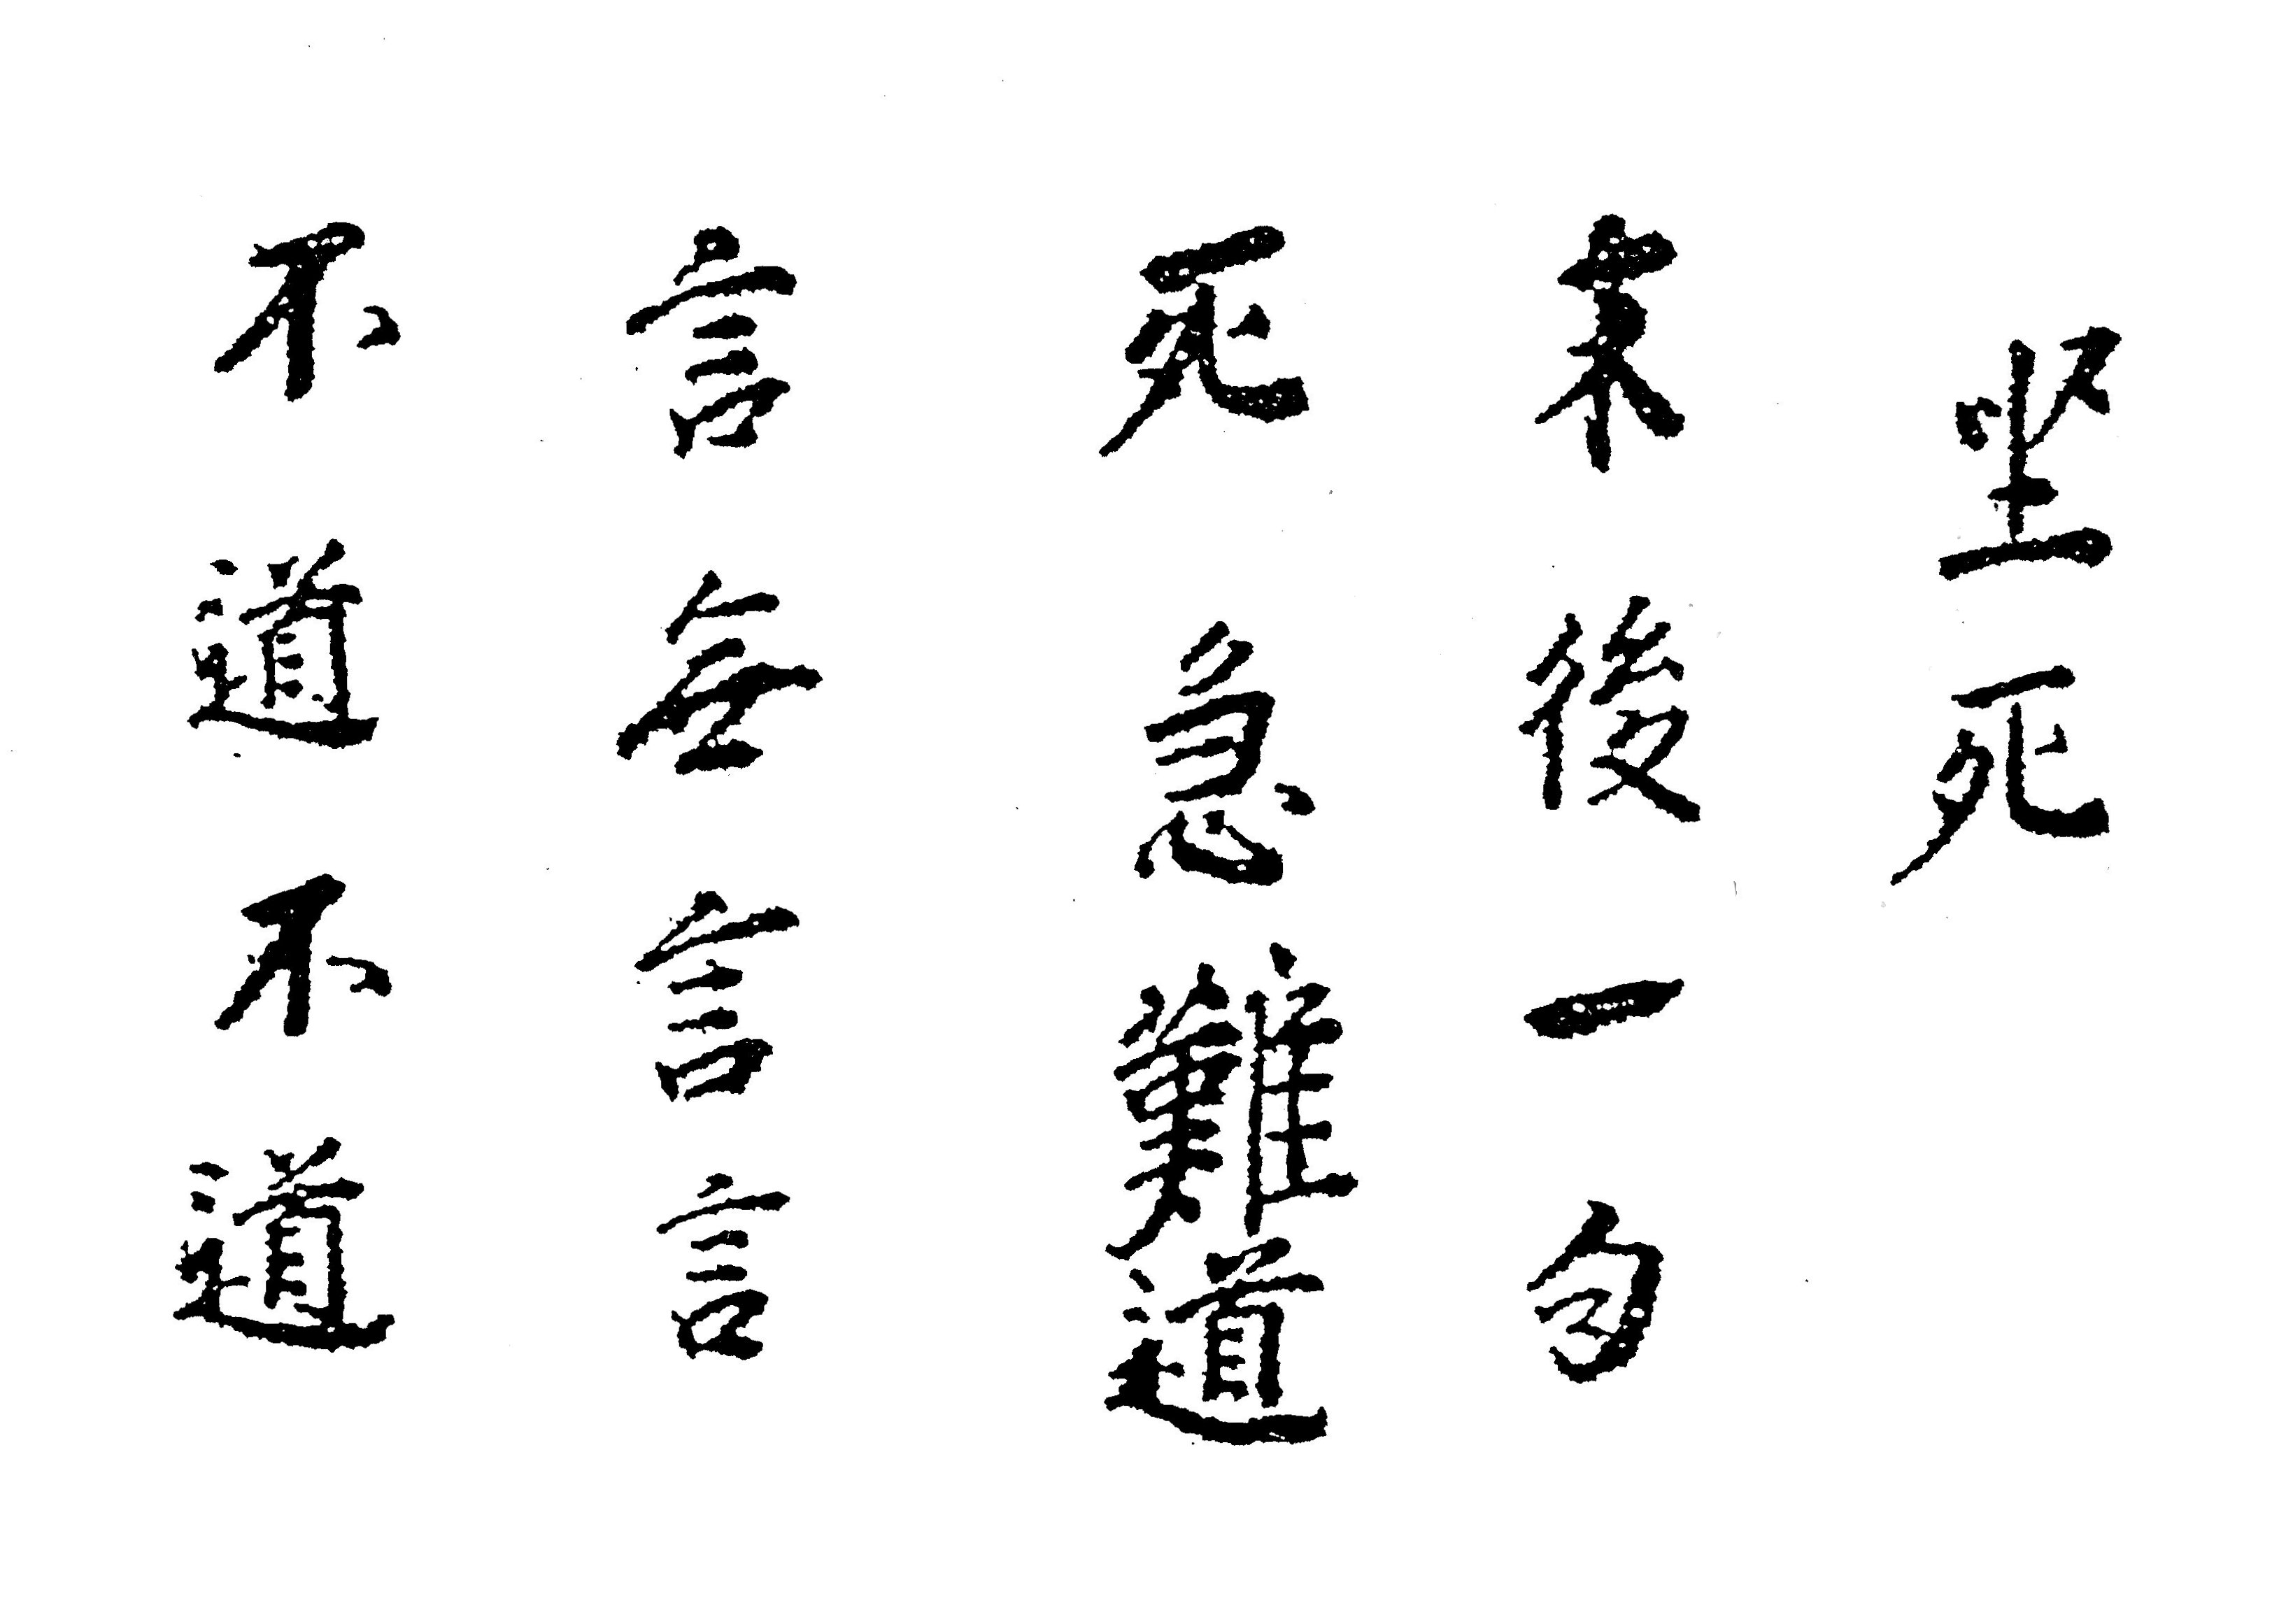 坐死
末後一句
死急難道
言無言言
不道不道